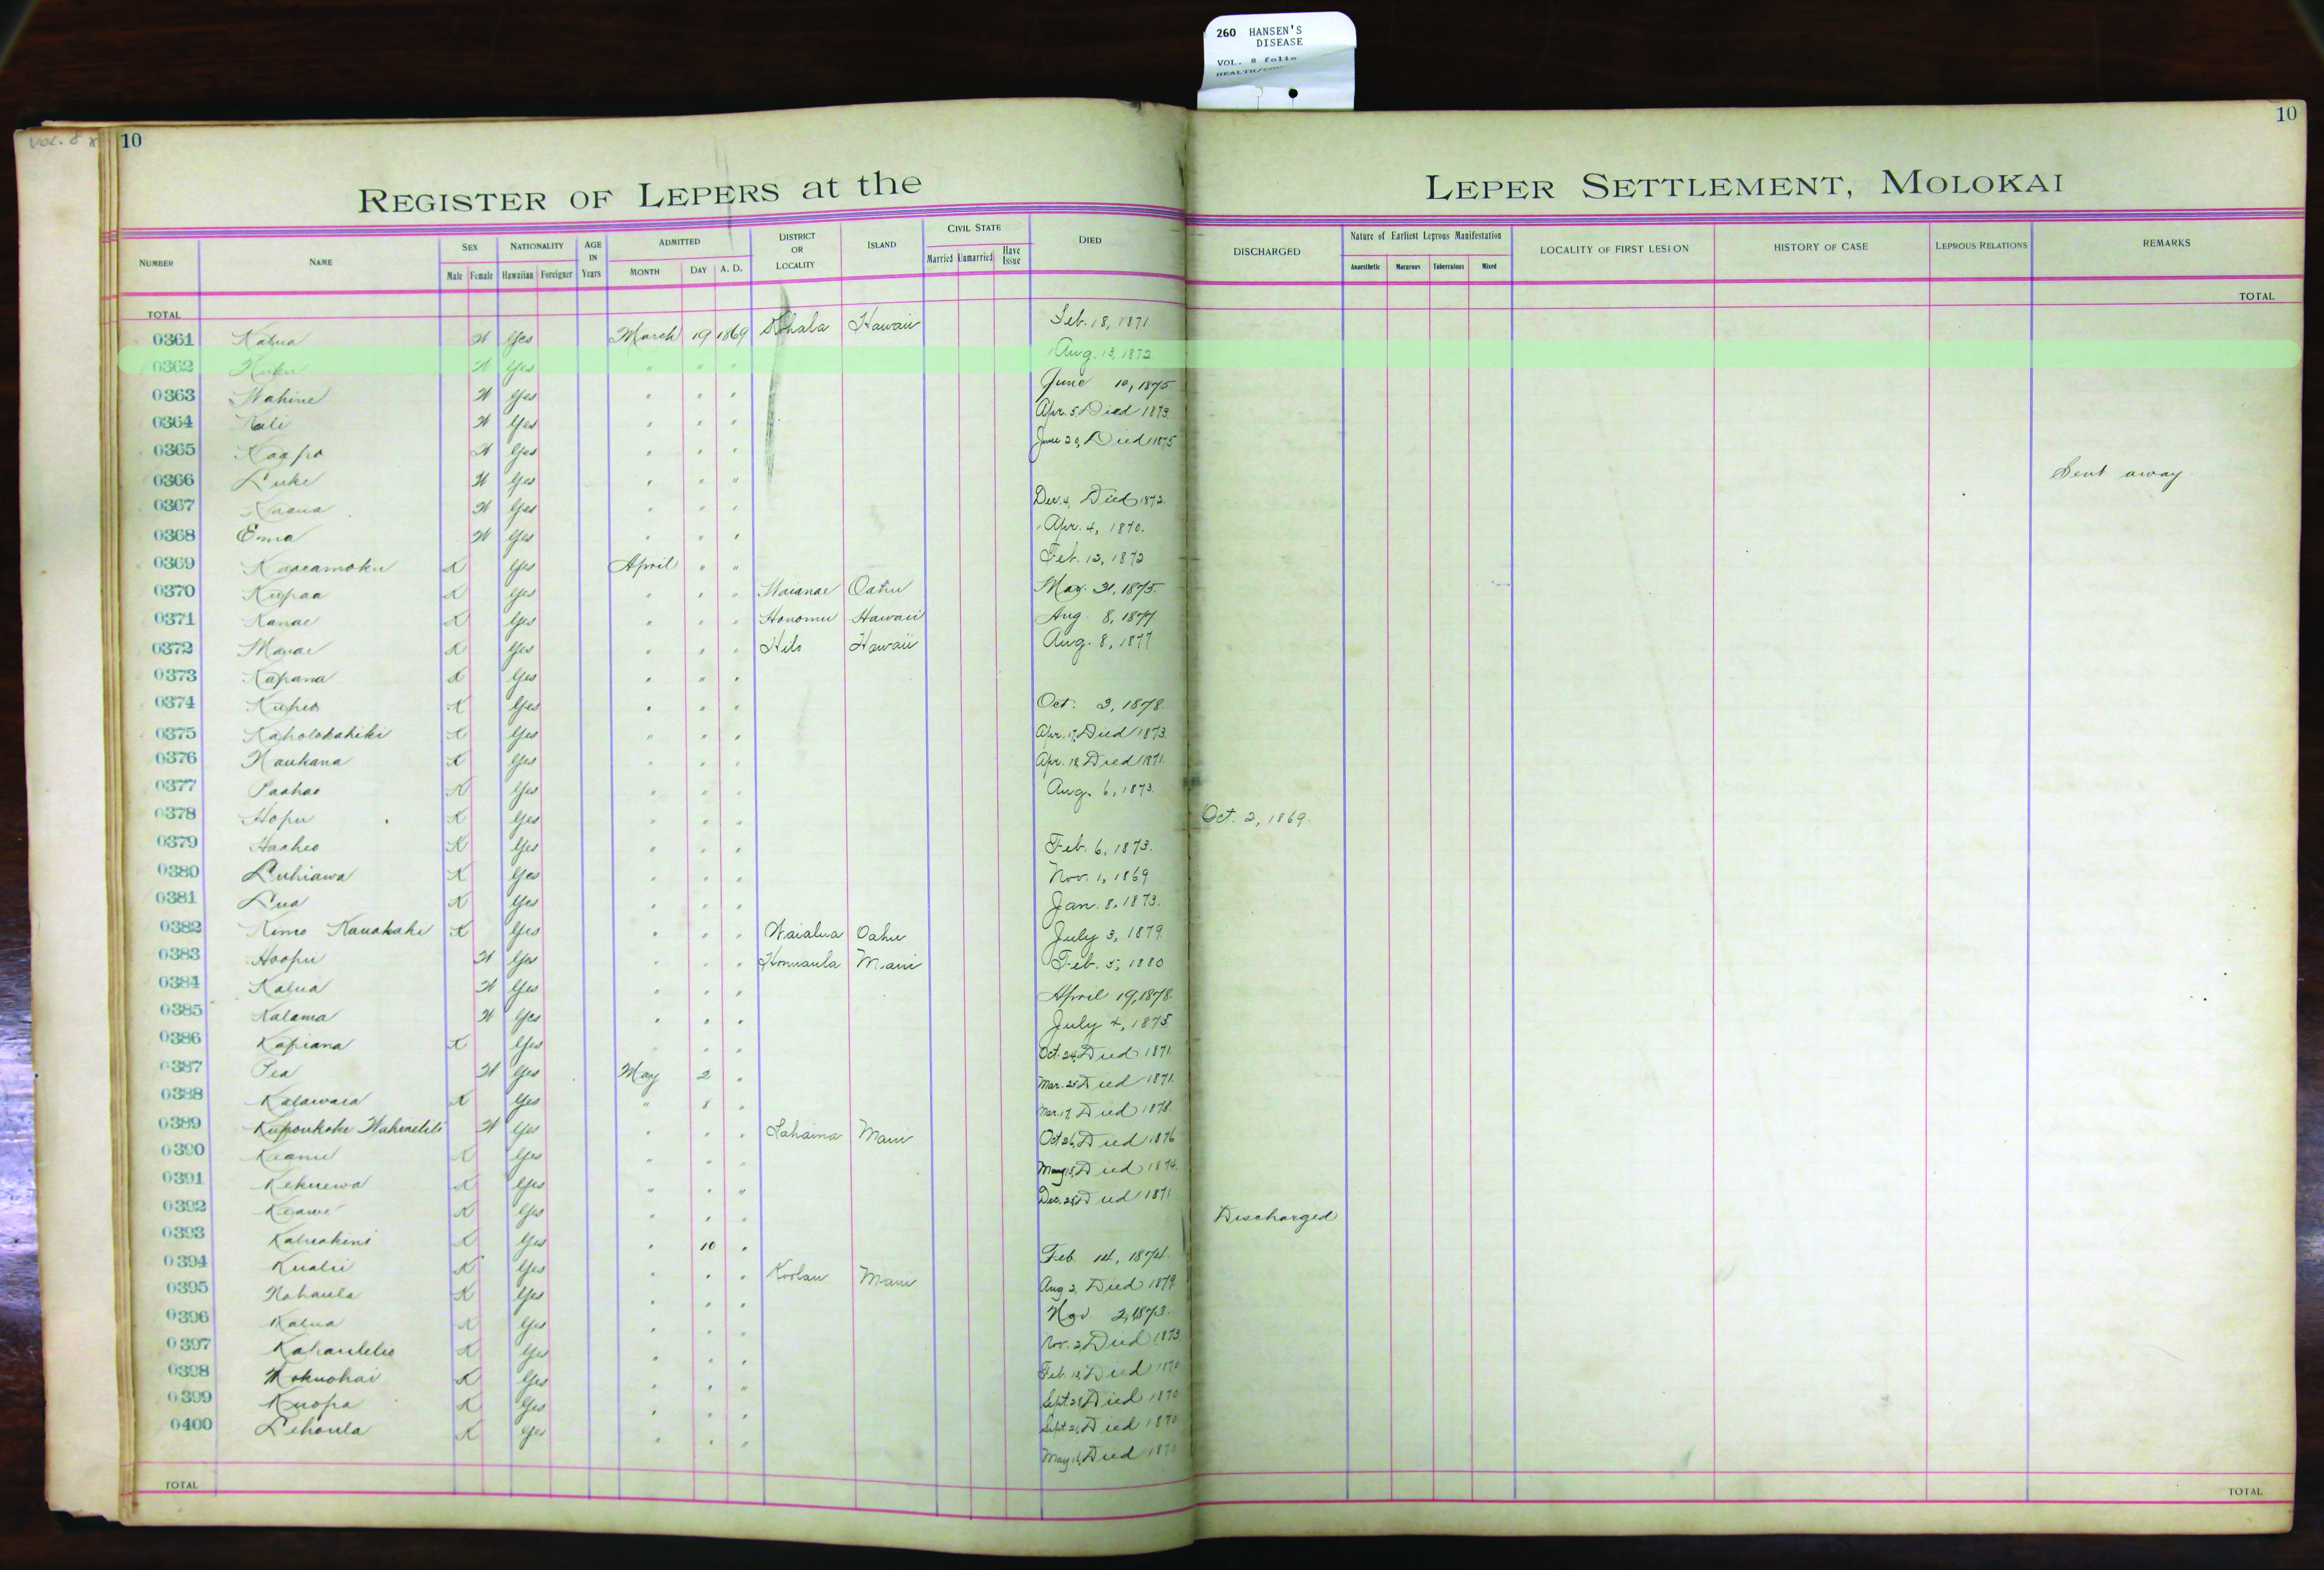 260 HANSEN'S
DISEASE
VOL. 8 folio
VOL. 8
10
10
REGISTER OF LEPERS at the LEPER SETTLEMENT, MOLOKAI
NUMBER NAME SEX Male Female NATIONALITY Hawaiian Foreigner AGE IN Years ADMITTED MONTH DAY A. D. DISTRICT OR LOCALITY ISLAND CIVIL STATE Married Unmarried Have Issue DIED DISCHARGED Nature of Earliest Leprous Manifestation Anaesthetic Macurous Tuberculous Mixed LOCALITY OF FIRST LESION HISTORY OF CASE LEPROUS RELATIONS REMARKS
TOTAL TOTAL
0361 Kalua W Yes March 19 1869 Kohala Hawaii Feb. 18, 1871
0362 W Yes " " " Aug. 13, 1872
0363 Wahine W Yes " " " June 10, 1875
0364 W Yes " " " Apr. 5 Died 1873
0365 W Yes " " " June 29, Died 1875
0366 Luke W Yes " " " Sent away
0367 W Yes " " " Dec. 4, Died 1872
0368 Emma W Yes " " " Apr. 4, 1870.
0369 K Yes April " " Feb. 12, 1872
0370 Kupaa K Yes " " " Waianae Oahu May. 31, 1875.
0371 Kanae K Yes " " " Honomu Hawaii Aug. 8, 1877
0372 K Yes " " " Hilo Hawaii Aug. 8, 1877
0373 Kapana K Yes " " "
0374 Kuheo K Yes " " " Oct. 3, 1878.
0375 Kaholokahiki K Yes " " " Apr. 17, Died 1873
0376 Naukana K Yes " " " Apr. 18 Died 1871.
0377 Paahao K Yes " " " Aug. 6, 1873
0378 Hopu K Yes " " " Oct. 2, 1869.
0379 Haaheo K Yes " " " Feb. 6, 1873.
0380 Luhiawa K Yes " " " Nov. 1, 1869
0381 Lua K Yes " " " Jan. 8, 1873.
0382 Kimo Kanakahi K Yes " " " Waialua Oahu July 3, 1879
0383 Hoopii W Yes " " " Honuaula Maui Feb. 5, 1880
0384 Kalua W Yes " " " April 19, 1878.
0385 Kalama W Yes " " " July 4, 1875
0386 Kapiana K Yes " " " Oct. 24, Died 1871
0387 Pea W Yes May 2 " Mar. 25 Died 1871.
0388 Kalawaia K Yes " 8 " Mar. 17, Died 1878.
0389 W Yes " " " Lahaina Maui Oct 26, Died 1876
0390 Keanu K Yes " " " May 15, Died 1874.
0391 Kekuewa K Yes " " " Dec. 25 Died 1871
0392 Keawe K Yes " " " Discharged
0393 Kaheakini K Yes " 10 " Feb. 14, 1874.
0394 Kualii K Yes " " " Koolau Maui Aug 2, Died 1879
0395 Nohaula K Yes " " " Nov 2, 1873.
0396 Kalua K Yes " " " Nov. 2, Died 1873
0397 K Yes " " " Feb. 18, Died 1870
0398 Mokuohai K Yes " " " Sept. 28 Died 1870
0399 Kuopa K Yes " " " Sept. 21, Died 1870
0400 Lehoula K Yes " " " May 16, Died 1870
TOTAL TOTAL